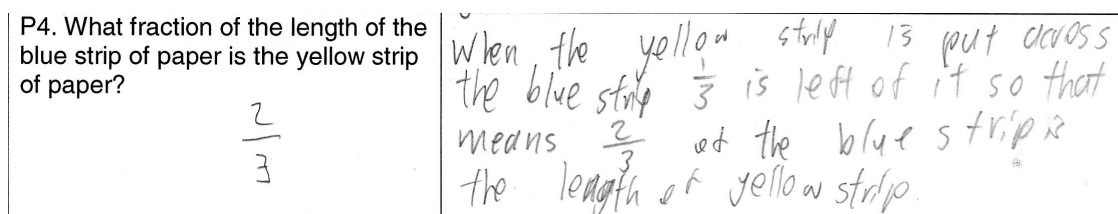 P4. What fraction of the length of the
blue strip of paper is the yellow strip
of paper?
2
3
When the yellow strip is put across
the blue strip 1/3 is left of it so that
means 2/3 of the blue strip is
the length of yellow strip.